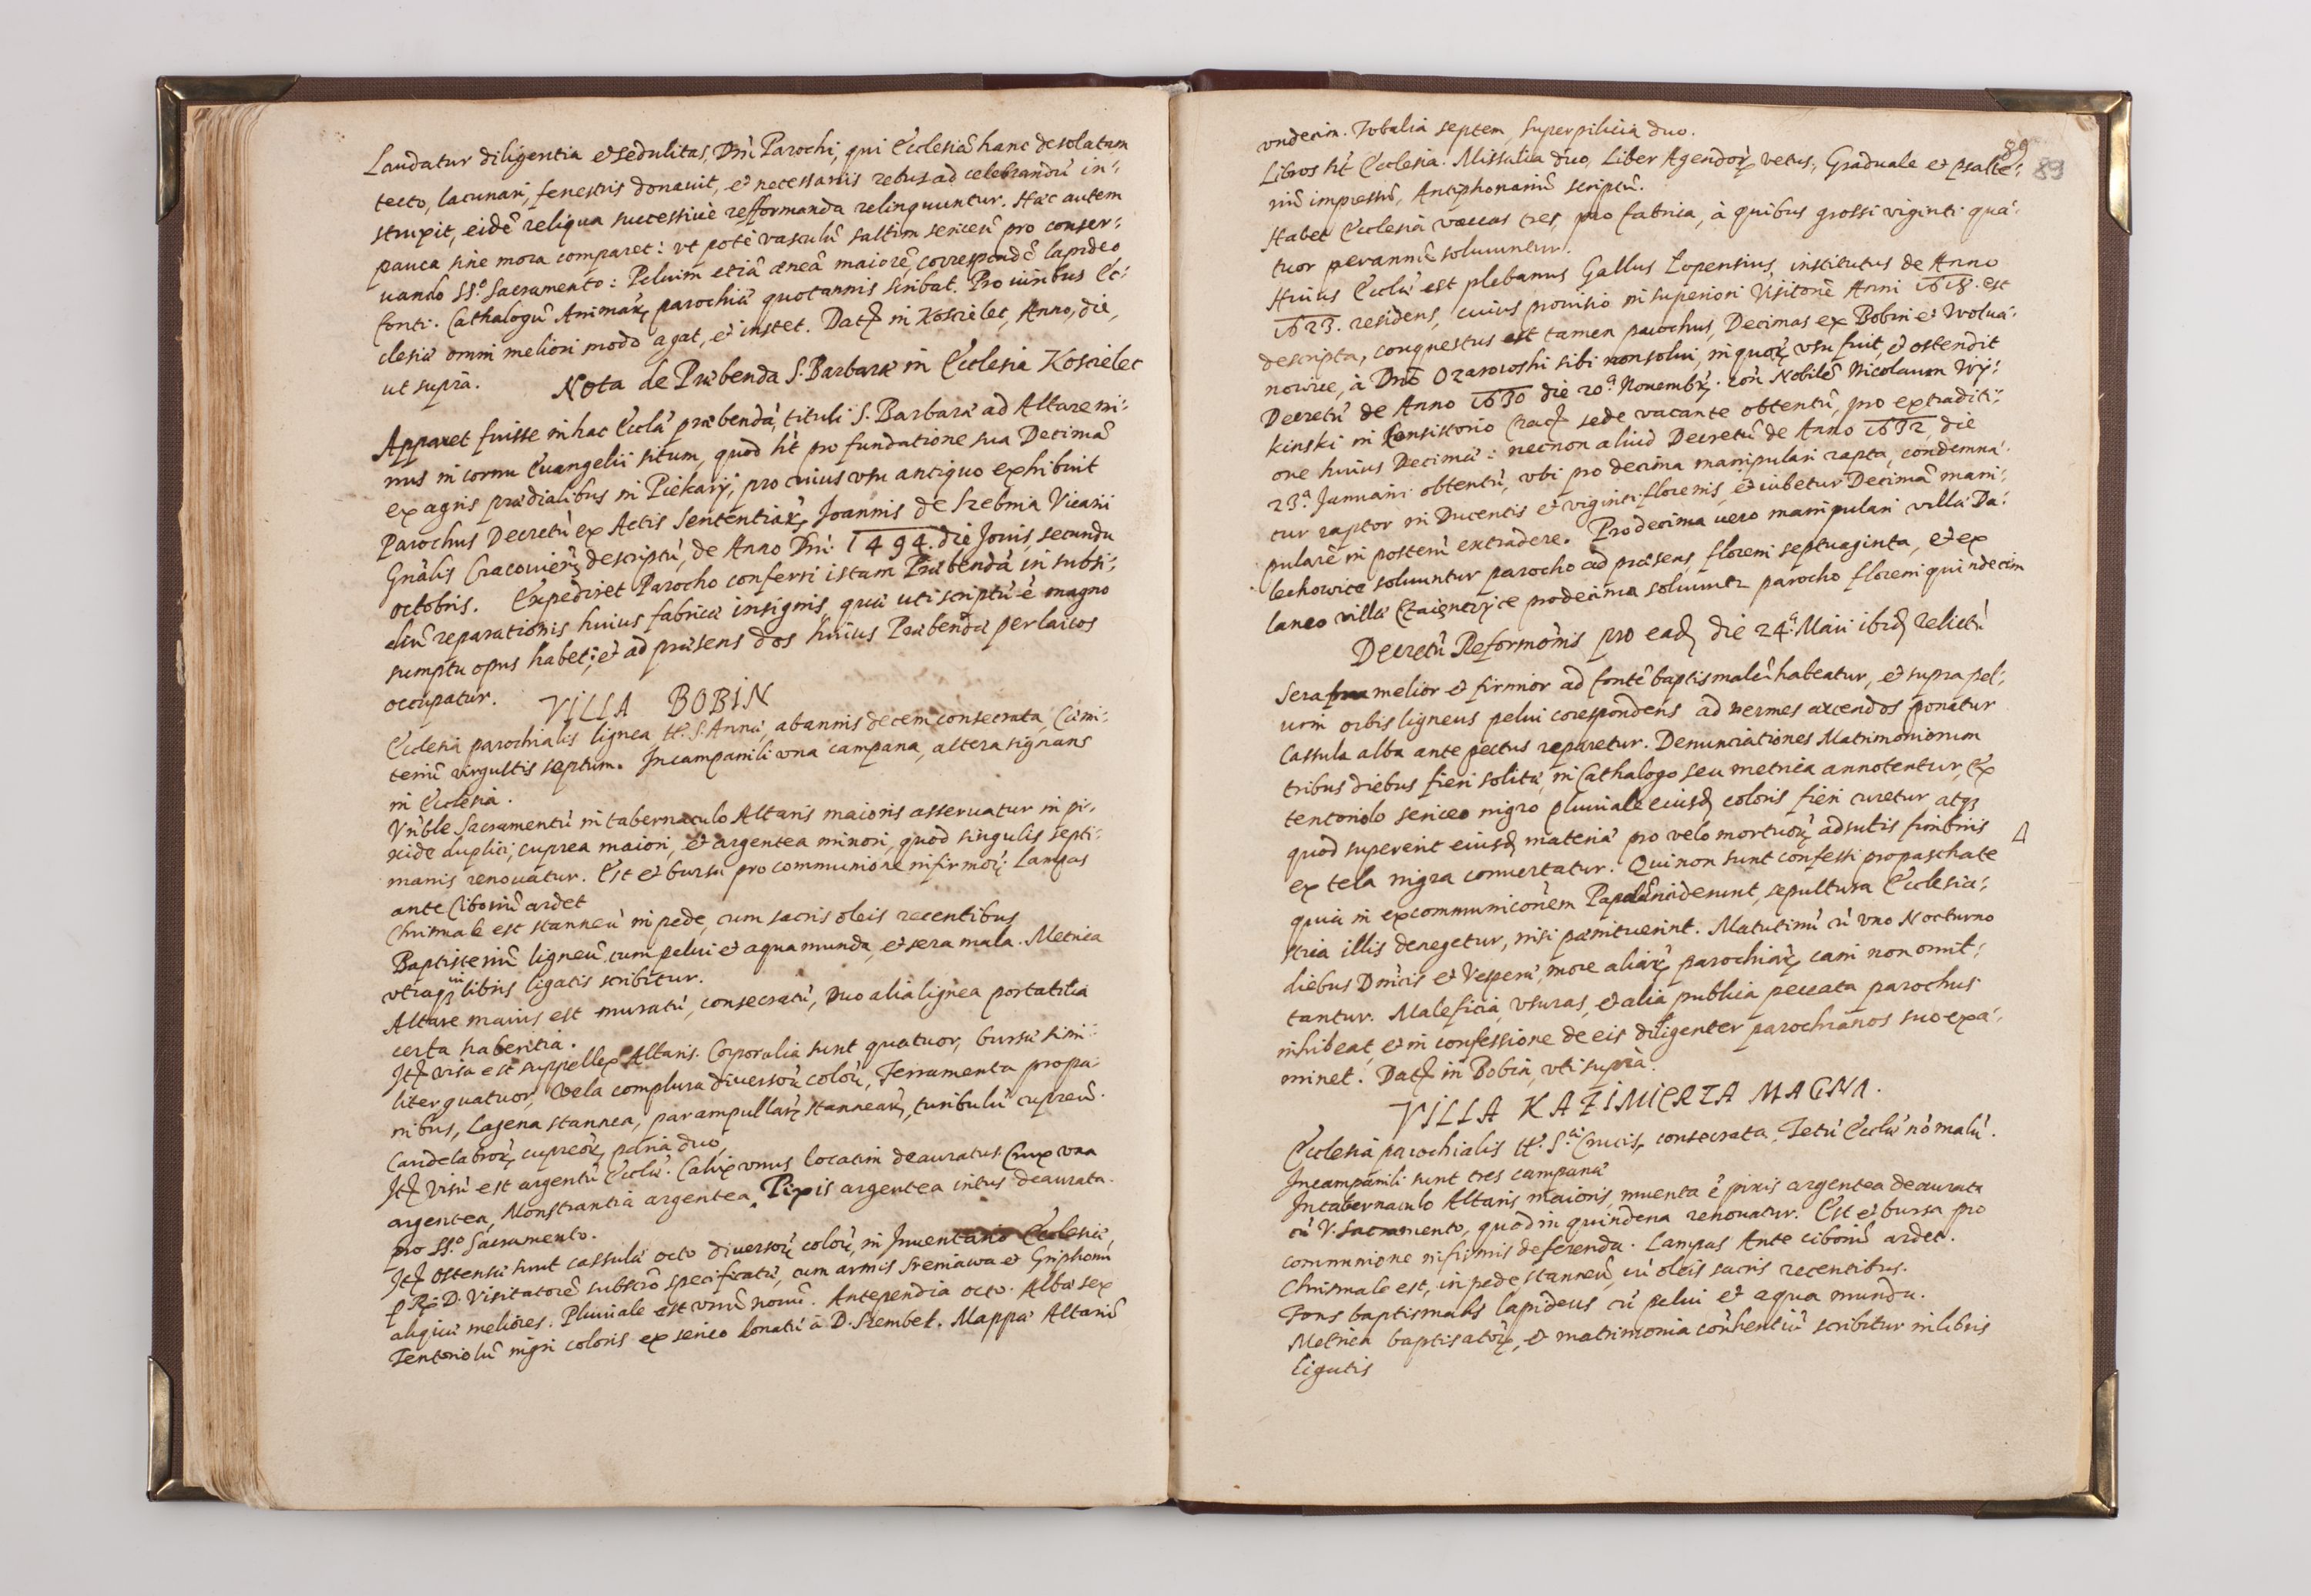 Laudatur diligentia et sedulitas, Dni Parochi, qui Ecclesiã hanc desolatam
tecto, lacunari, fenestris donauit, et necessarijs rebus ad celebrandũ in:
struxit, eidẽ reliqua successiuè refformanda relinquuntur. Hæc autem
pauca sine mora comparet: vt potè vasculũ saltim sericeũ pro conser:
uando SS.o Sacramento: Peluim etiã æneã maiorẽ, correspondẽ lapideo
fonti. Cathalogũ Animarꝝ parochiæ quotannis scribat. Pro iuribus Ec:
clesiæ omni meliori modo agat, et instet. Datꝭ in Koscielec, Anno, die,
ut suprà.
Nota de Præbenda S. Barbaræ in Ecclesia Koscielec
Apparet fuisse in hac Ecclã præbendã, tituli S. Barbaræ ad Altare mi:
nus in cornu Euangelii situm, quod ht pro fundatione sua Decimã
ex agris prædialibus in Piekary, pro cuius vsu antiquo exhibuit
Parochus Decretũ ex Actis Sententiarꝝ Joannis de Szebnia Vicarii
Gnãlis Cracouieñ descriptũ, de Anno Dni 1494. die Jouis, secunda
octobris. Expediret Parocho conferri istam Præbendã in subsi:
diũ reparationis, huius fabricæ insignis, quæ uti scriptũ è magno
sumptu opus habet; et ad præsens dos huius Præbendæ per laicos
occupatur.
VILLA BOBIN
Ecclesia parochialis lignea tt. S. Annæ, ab annis decem consecrata, Cæmi:
teriũ virgultis septum. In campanili vna campana, altera signans
in Ecclesia.
Vnble Sacramentũ in tabernaculo Altaris maioris asseruatur in pi:
xide duplici, cuprea maiori, et argentea minori, quod singulis septi:
manis renouatur. Est et bursa pro communione infirmorꝝ Lampas
ante Ciboriũ ardet
Chrismale est stanneũ in pede, cum sacris oleis recentibus
Baptisteriũ ligneũ cum pelui et aqua munda, et sera mala. Metrica
vtraqꝫ in libris ligatis scribitur.
Altare maius est muratũ, consecratũ, duo alia lignea portatilia
certa habentia.
Itꝭ visa est suppellex Altaris. Corporalia sunt quatuor, bursæ simi:
liter quatuor, Vela complura diuersorũ colorũ, Ferramenta pro pa:
nibus, Lagena stannea, par ampullarꝝ stannearꝝ, turibulũ cupreũ.
Candelabrorꝝ cupreorꝝ paria duo.
Itꝭ visũ est argentũ Ecclæ. Calix vnus locatim deauratus. Crux vna
argentea, Monstrantia argentea, Pixis argentea intus deaurata.
pro SS.o Sacramento.
Itꝭ ostensæ sunt cassulæ octo diuersorũ colorũ, in Inuentario Ecclesiæ,
p R. D. Visitatorẽ subscrõ specificatæ, cum armis Sreniawa et Griphonũ
aliquæ meliores. Pluuiale est vnũ nouũ. Antependia octo. Albæ sex
Tentoriolũ nigri coloris ex serico donatũ à D. Szembek. Mappæ Altariũ
89
89
vndecim. Tobalia septem, superpilicia duo.
Libros ht Ecclesia. Missalia duo, Liber Agendorꝝ vetus, Graduale et psalte:
riũ impressũ, Antiphonariũ scriptũ.
Habet Ecclesia vaccas tres, pro fabrica, à quibus grossi viginti qua:
tuor per annũ soluuntur.
Huius Ecclæ est plebanus Gallus Lopensius, institutus de Anno
1623. residens, cuius prouisio in superiori Visitonẽ Anni 1618. est
descripta, conquestus est tamen parochus, Decimas ex Bobin et Wolua:
nowice, à Dnõ Ozarowski sibi non solui, in quorꝝ vsu fuit, et ostendit
Decretũ de Anno 1630 die 20.a Nouembrꝭ. con Nobilẽ Nicolaum Wy:
kinski in Consistorio Cracꝭ sede vacante obtentũ, pro extraditi:
one huius Decimæ: necnon aliud Decretũ de Anno 1632, die
23.a Januarii obtentũ, vbi pro decima manipulari rapta, condemna:
tur raptor in Ducentis et viginti florenis, et iubetur Decimã mani:
pularẽ in posterũ extradere. Pro decima uero manipulari villæ Da:
lechowice soluuntur parocho ad præsens, floreni septuaginta, et ex
laneo villæ Czaienczyce pro decima soluuntr parocho floreni quindecim
Decretũ Reformõnis pro eadꝭ die 24.a Maii ibidꝭ relictũ
Sera melior et firmior ad fontẽ baptismalẽ habeatur, et supra pel:
uim orbis ligneus pelui corespondens ad vermes arcendos ponatur
Cassula alba ante pectus reparetur. Denunciationes Matrimoniorum
tribus diebus fieri solitæ, in Cathalogo seu metrica annotentur, Ex
tentoriolo sericeo nigro pluuiale eiusdꝭ coloris fieri curetur, atqꝫ
quod superérit eiusdꝭ materiæ pro velo mortuorꝝ adsutis fimbriis
ex tela nigra conuertatur. Qui non sunt confessi pro paschate
quia in excommunicõnem Papalẽ inciderunt, sepultura Ecclesia:
stica illis denegetur, nisi pænituerint. Matutinũ cũ vno Nocturno
diebus Dnicis et Vesperæ, more aliarꝝ parochiarꝝ cani non omit:
tantur. Maleficia, vsuras, et alia publica peccata parochus
inhibeat, et in confessione de eis diligenter parochianos suo exa:
minet. Datꝭ in Bobin, vti suprà.
VILLA KAZIMIERZA MAGNA.
Ecclesia parochialis tt. S.æ Crucis, consecrata, Tetũ Ecclæ nõ malũ.
In campanili sunt tres campanæ
In tabernaculo Altaris maioris, inuenta ẽ pixis argentea deaurata
cũ V. Sacramento, quod in quindena renouatur. Est et bursa pro
communione infirmis deferenda. Lampas Ante ciboriũ ardet.
Chrismale est, in pede stanneũ, cũ oleis sacris recentibus.
Fons baptismalis lapideus cũ pelui et aqua munda.
Metrica baptisatorꝝ, et matrimonia cõnhentiũ scribitur in libris
ligatis